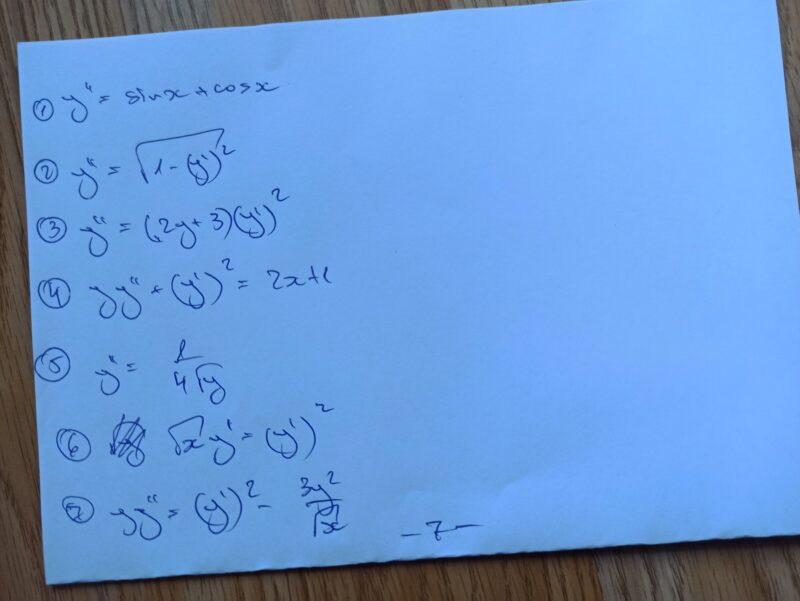 ① y'' = sin x + cos x
② y'' = √(1 - (y')²)
③ y'' = (2y + 3)(y')²
④ yy'' + (y')² = 2x + 1
⑤ y'' = 1/(4√y)
⑥ √x y' = (y')²
⑦ yy'' = (y')² - 3y²/√x
- 7 -